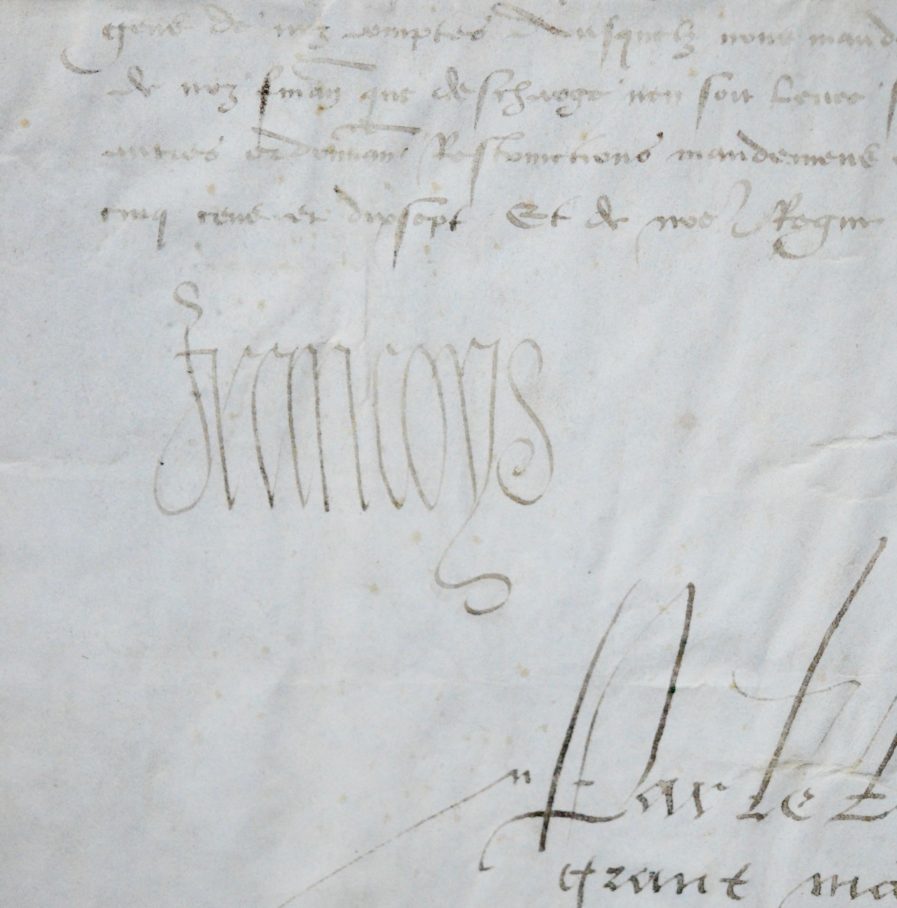 gens de noz comptes Ausquelz nous mand
de noz finan que descharge nen soit levee
autres ordonnan Restrinctions mandemens
cinq cens et dixsept Et de nre Regne
Francoys
Par le
grant ma